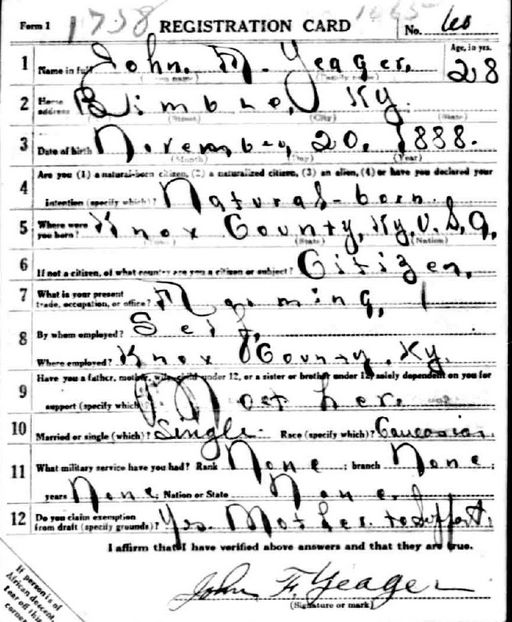 Form 1 1738 REGISTRATION CARD No. 60
1 Name in full John. M. Yeager. Age, in yrs. 28
2 Home address Bimble, Ky.
(Street) (City) (State)
3 Date of birth November 20. 1888.
(Month) (Day) (Year)
Are you (1) a natural-born citizen, (2) a naturalized citizen, (3) an alien, (4) or have you declared your
4 intention (specify which)? Natural-born.
5 Where were you born? Knox County, Ky. U.S.A,
(State) (Nation)
6 If not a citizen, of what country are you a citizen or subject? Citizen,
7 What is your present trade, occupation, or office?
8 By whom employed? Self,
Where employed? Knox County. Ky.
Have you a father, mother, wife, child under 12, or a sister or brother under 12, solely dependent on you for
9 support (specify which)? Mother.
10 Married or single (which)? Single. Race (specify which)? Caucasian.
11 What military service have you had? Rank None ; branch None ;
years None; Nation or State None.
12 Do you claim exemption from draft (specify grounds)? Yes. Mother. to Support.
I affirm that I have verified above answers and that they are true.
John F. Yeager
(Signature or mark)
If person is of
African descent,
tear off this
corner